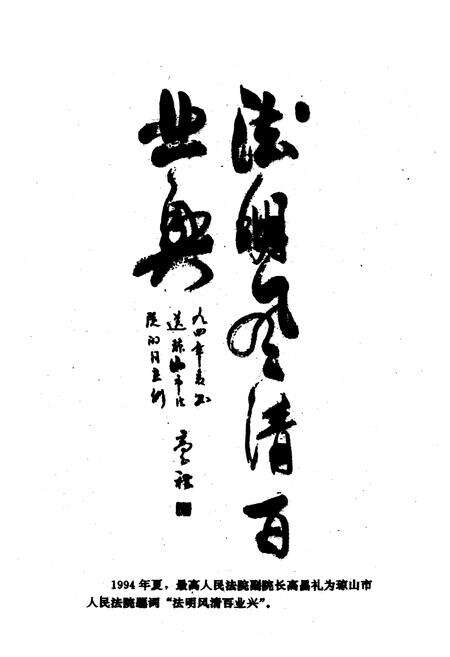 法明风清百
业兴
九四年夏
送琼山市法
院的同志们
1994 年夏，最高人民法院副院长高昌礼为琼山市
人民法院题词“法明风清百业兴”。